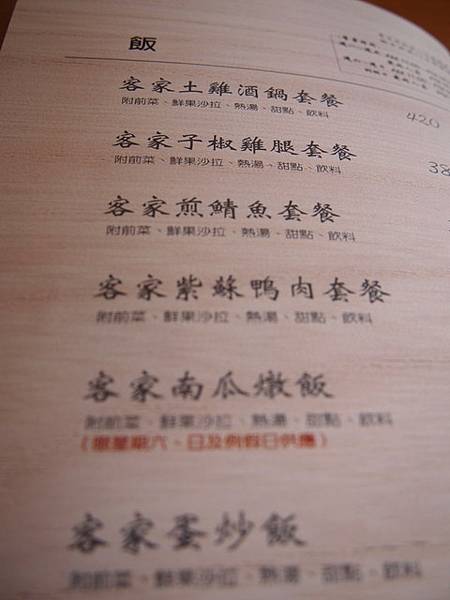 飯
客家土雞酒鍋套餐 420
附前菜、鮮果沙拉、熱湯、甜點、飲料
客家子椒雞腿套餐 38
附前菜、鮮果沙拉、熱湯、甜點、飲料
客家煎鯖魚套餐
附前菜、鮮果沙拉、熱湯、甜點、飲料
客家紫蘇鴨肉套餐
附前菜、鮮果沙拉、熱湯、甜點、飲料
客家南瓜燉飯
附前菜、鮮果沙拉、熱湯、甜點、飲料
(限星期六、日及例假日供應)
客家蛋炒飯
附前菜、鮮果沙拉、熱湯、甜點、飲料